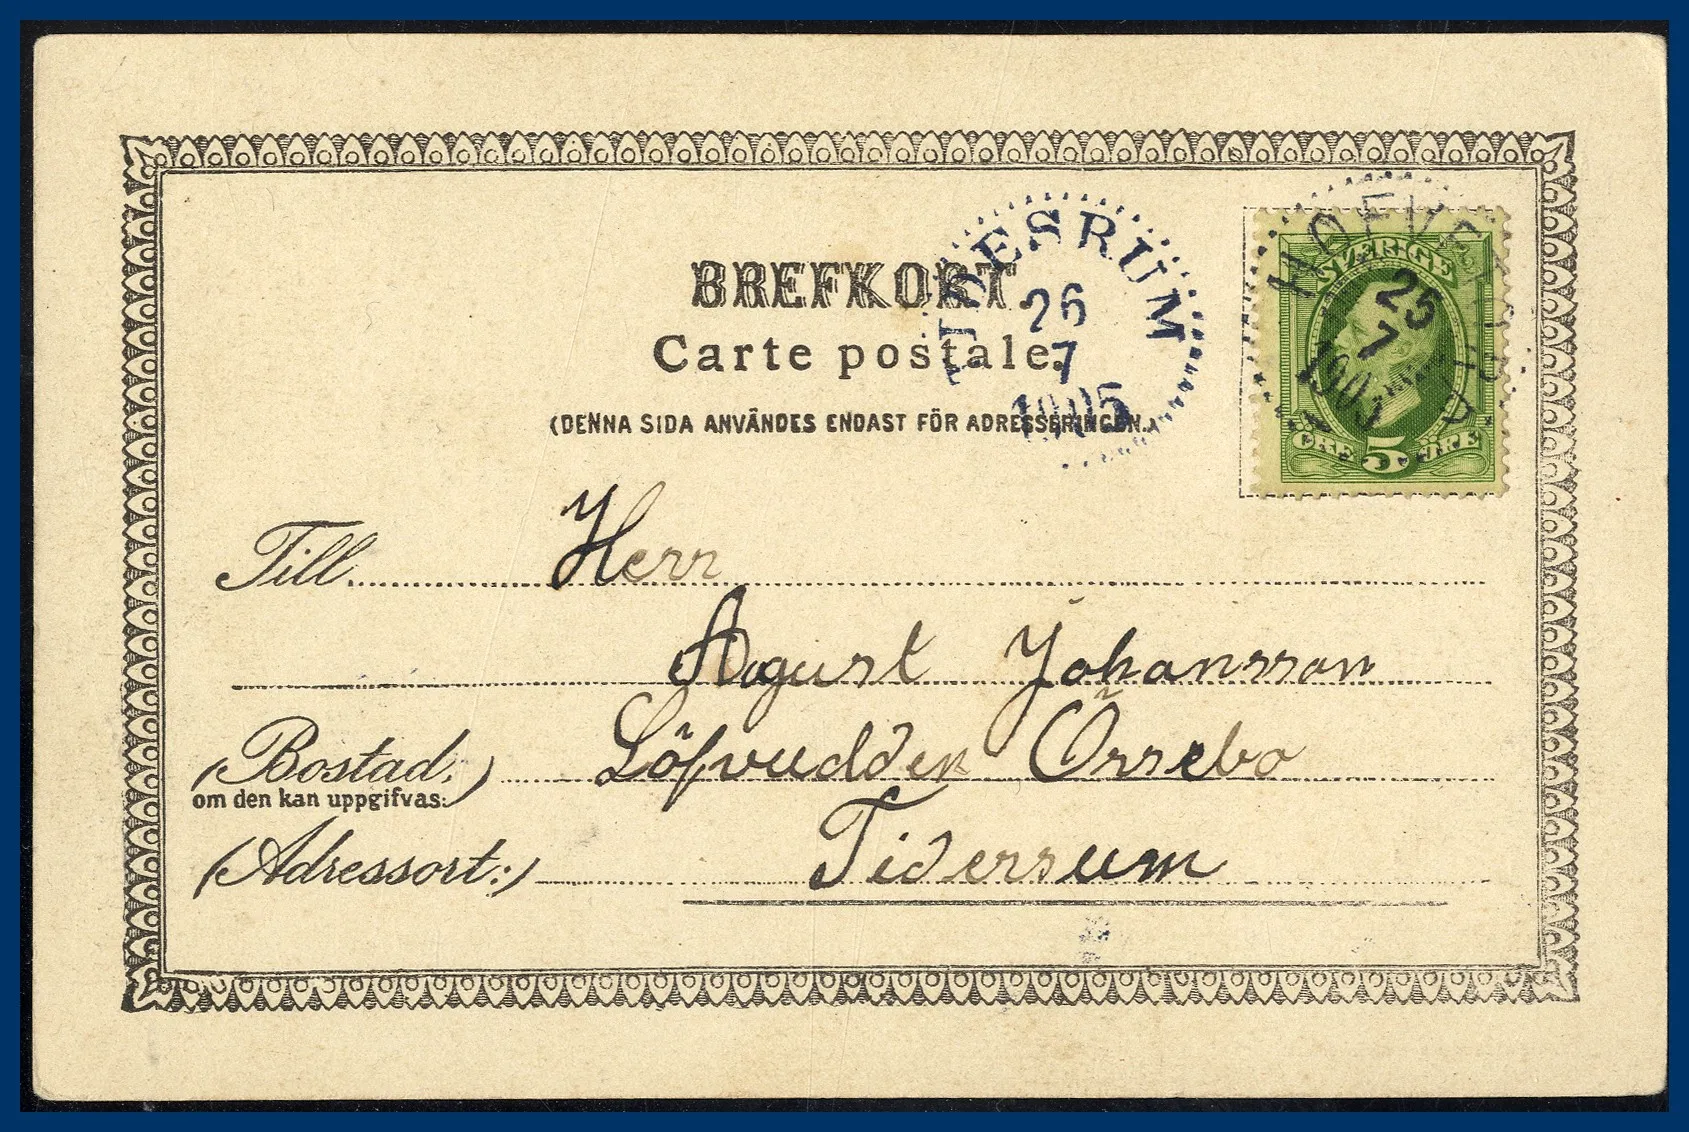 BREFKORT.
Carte postale.
(DENNA SIDA ANVÄNDES ENDAST FÖR ADRESSERINGEN.)
TIDESRUM
26
7
1905
SVERIGE
25
7
1905
ÖRE 5 ÖRE
Till Herr
August Johansson
(Bostad,) Löfvudden Örsebo
om den kan uppgifvas:
(Adressort:) Tidersrum